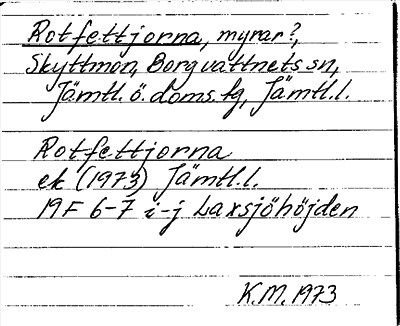 Rotfettjorna, myrar?,
Skyttmon, Borgvattnets sn,
Jämtl. ö. doms. tg, Jämtl.l.
Rotfettjorna
ek (1973) Jämtl.l.
19F 6-7 i-j Laxsjöhöjden
K.M. 1973